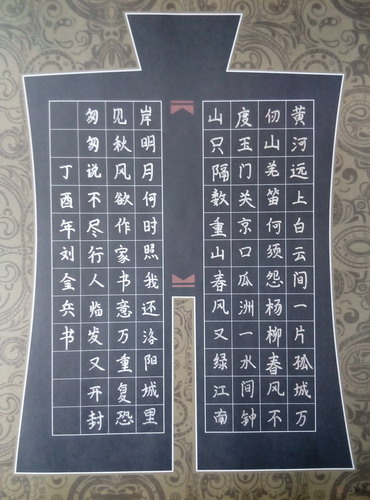 黄河远上白云间一片孤城万
仞山羌笛何须怨杨柳春风不
度玉门关京口瓜洲一水间钟
山只隔数重山春风又绿江南
岸明月何时照我还洛阳城里
见秋风欲作家书意万重复恐
匆匆说不尽行人临发又开封
丁酉年刘金兵书